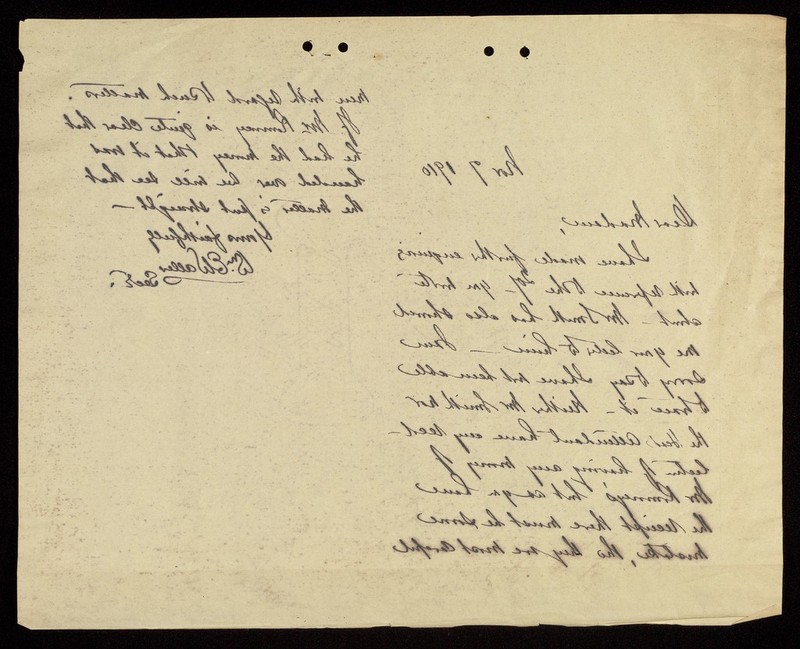 Nov 9 1910
Dear Madam,
I have made further enquiries
with reference to the 2/- you wrote
about – Mr Smith has also showed
me your letter to him – I am
sorry to say I have not been able
to trace it – Neither Mr Smith nor
the bar attendant have any recol-
lection of having any money of
Mr Kinney's but as you have
the receipt there must be some
mistake, tho they are most careful
men with regard to such matters.
If Mr. Kinney is quite clear that
he had the money & that it was
handed over he will see that
the matter is put straight –
Yours faithfully
Wm. E Waller
Secy.